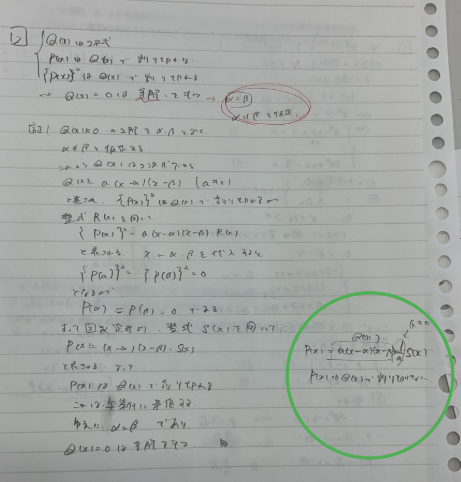 12
Q(x)は2次式
P(x)はQ(x)で割り切れない
{P(x)}²はQ(x)で割り切れる
⇒ Q(x)=0は重解をもつ → α=β
α≠βと仮定
証) Q(x)=0の2解をα,βとおく
α≠βと仮定する
このとき Q(x)は
Q(x)= a(x-α)(x-β) (a≠0)
と表され、{P(x)}²はQ(x)で割り切れるので
整式R(x)を用いて
{P(x)}²= a(x-α)(x-β)・R(x)
と表される x=α,βを代入すると
{P(α)}²={P(β)}²=0
となるので
P(α)=P(β)=0である
よって因数定理より、整式S(x)を用いて
P(x)=(x-α)(x-β)・S(x)
と表される よって
P(x)はQ(x)で割り切れる
これは条件に矛盾する
ゆえに α=βであり
Q(x)=0は重解をもつ
Q(x) a≠0
P(x)= a(x-α)(x-β) 1/a S(x)
P(x)はQ(x)で割り切れ